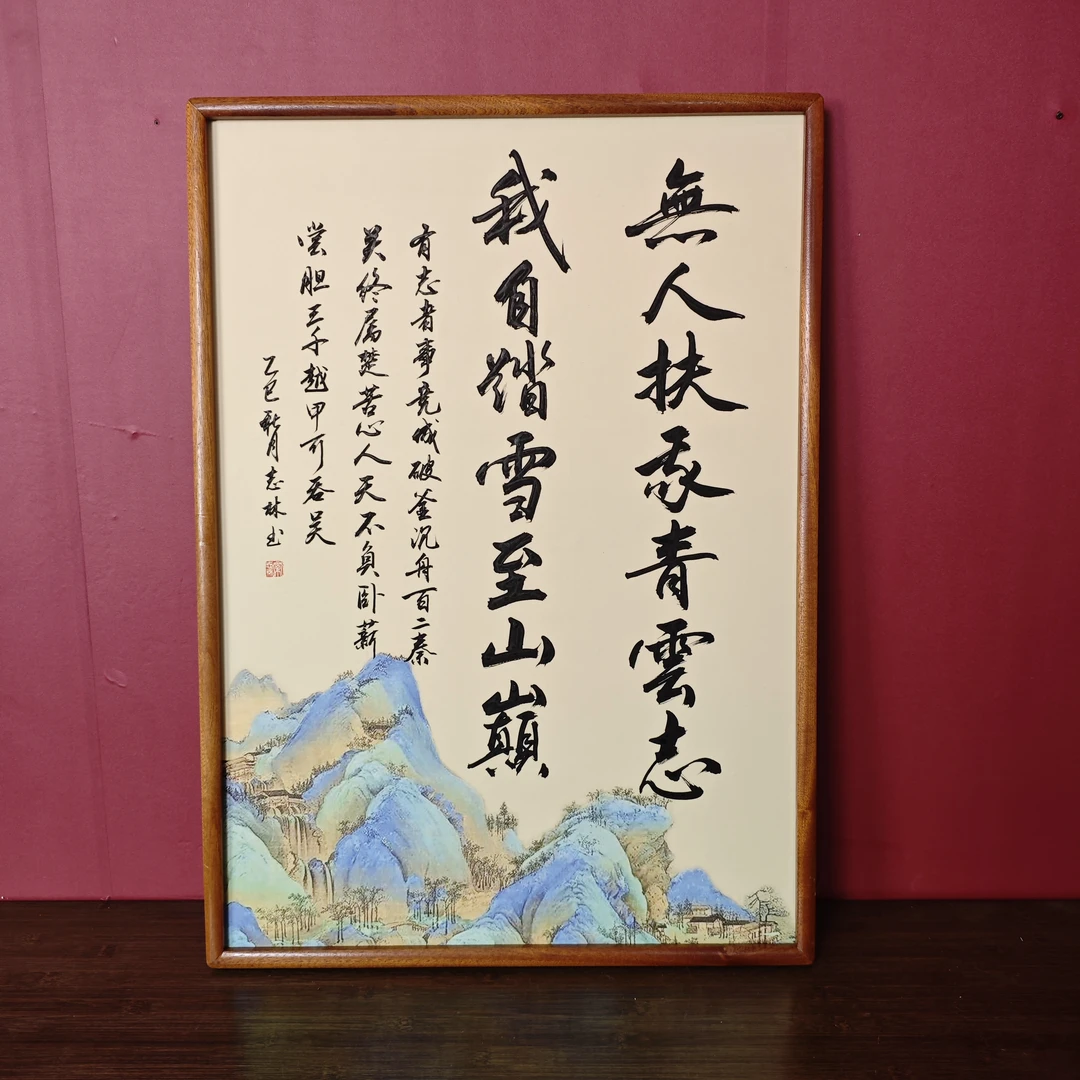 無人扶我青雲志
我自踏雪至山巔
有志者事竟成破釜沉舟百二秦
关终属楚苦心人天不負卧薪
尝胆三千越甲可吞吴
乙巳秋月志林书